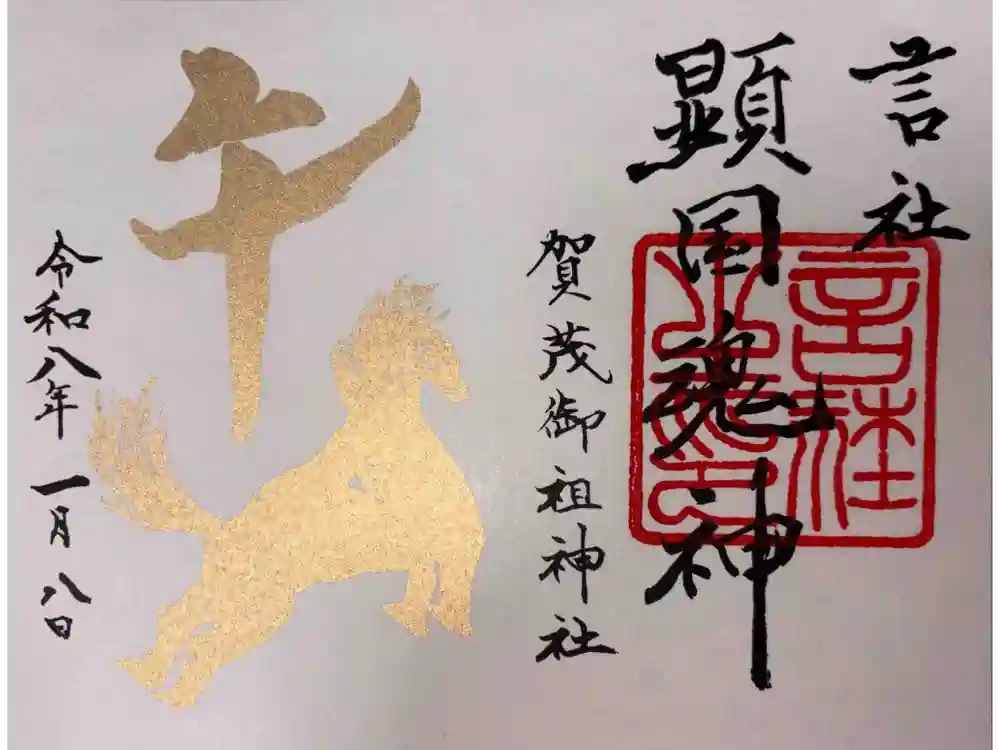 言社
顕国魂神
賀茂御祖神社
午
令和八年 一月 八日
言社